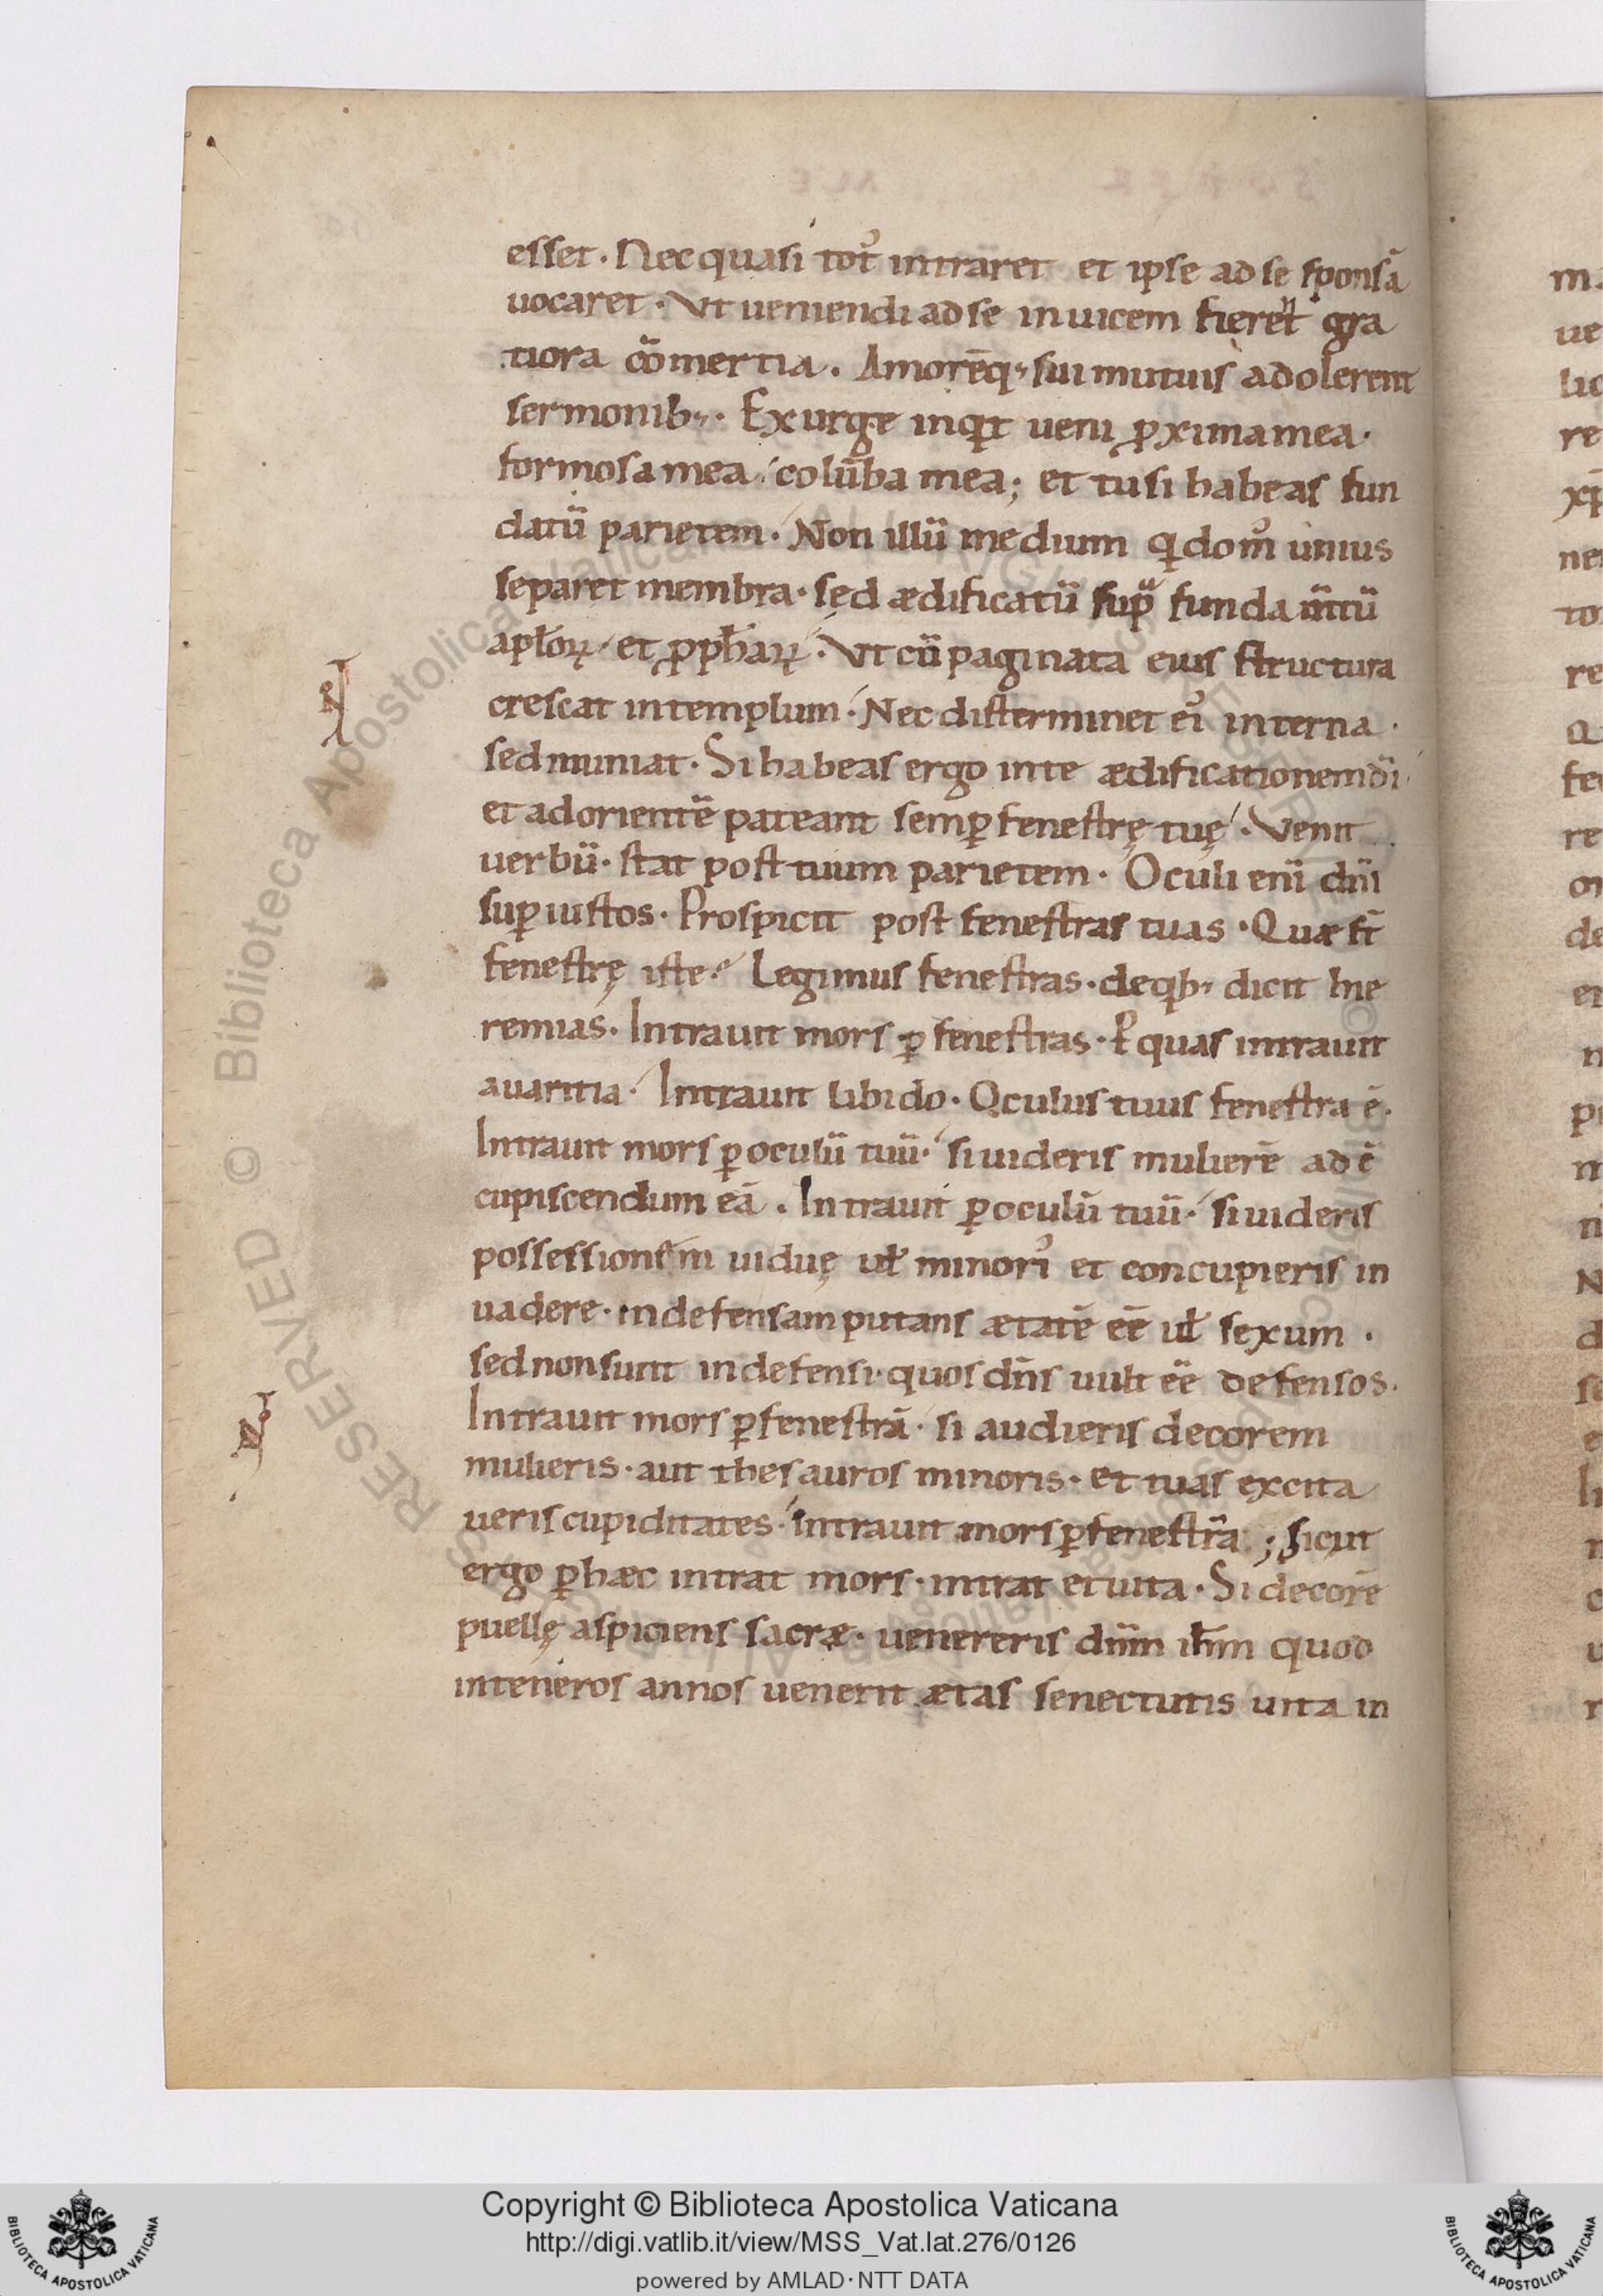 esset. Nec quasi tot᷒ intraret et ipse ad se sponsā
uocaret. Vt ueniendi ad se inuicem fieret gra
tiora cōmertia. Amorēq; sui mutuis adolerent
sermonib;. Exurge inqt ueni ꝓxima mea.
formosa mea. colūba mea; et tu si habeas fun
datū parietem. Non illū medium qi dom᷒ unius
separet membra. sed ædificatū supra fundam̄tū
apl̄oꝝ et ꝓph̄aꝝ. Vt cū paginata eius structura
crescat in templum. Nec disterminet ei᷒ interna.
sed muniat. Si habeas ergo in te ædificationem dī
et ad orientē pateant semꝑ fenestrę tuę. Venit
uerbū. stat post tuum parietem. Oculi enī dn̄i
suꝑ iustos. Prospicit post fenestras tuas. Quæ st̄
fenestrę iste? Legimus fenestras. de qb; dicit hie
remias. Intrauit mors ꝑ fenestras. Ꝑ quas intrauit
auaritia. Intrauit libido. Oculus tuus fenestra ē.
Intrauit mors ꝑ oculū tuū. si uideris mulierē ad c̄
cupiscendum eā. Intrauit ꝑ oculū tuū. si uideris
possessionem uiduę ul̄ minori᷒ et concupieris in
uadere. indefensam putans ætatē eē ul̄ sexum.
sed non sunt indefensi. quos dn̄s uult eē defensos.
Intrauit mors ꝑ fenestrā. si audieris decorem
mulieris. aut thesauros minoris. et tuas excita
ueris cupiditates. intrauit mors ꝑ fenestrā; sicut
ergo ꝑ hæc intrat mors. intrat et uita. Si decorē
puellę aspiciens sacræ. uenereris dn̄m ih̄m quod
in teneros annos uenerit ætas senectutis uita in
RESERVED © Biblioteca Apostolica Vaticana
Copyright © Biblioteca Apostolica Vaticana
http://digi.vatlib.it/view/MSS_Vat.lat.276/0126
powered by AMLAD·NTT DATA
BIBLIOTECA APOSTOLICA VATICANA
BIBLIOTECA APOSTOLICA VATICANA